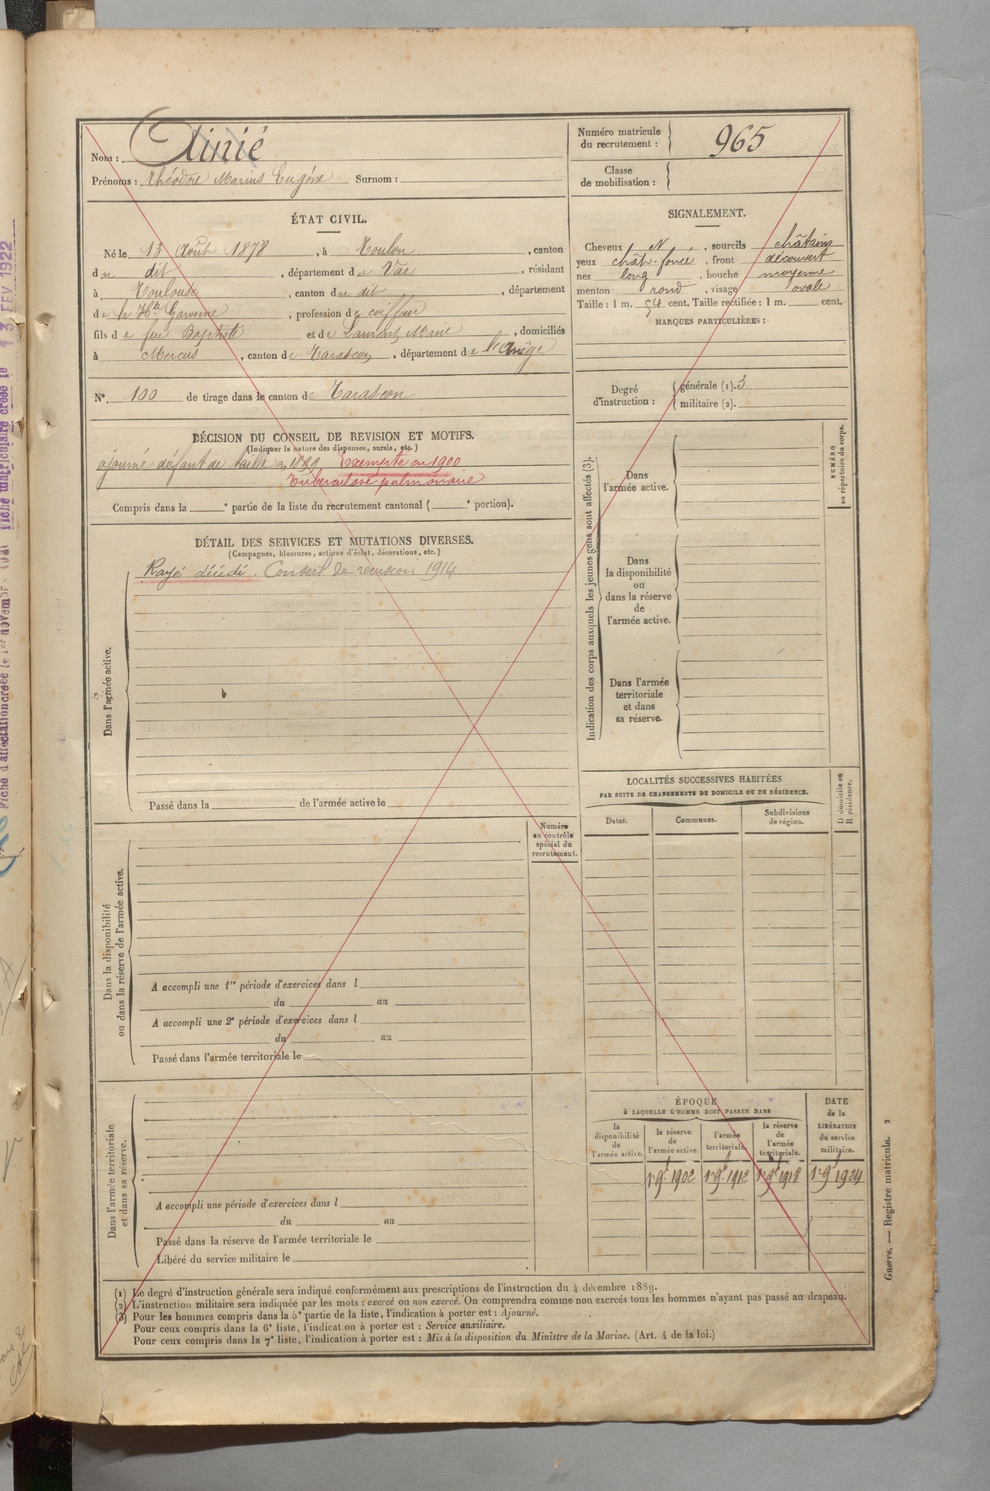 Nom : Ainié
Prénoms : Théodore Marius Eugène Surnom :
Numéro matricule du recrutement : 965
Classe de mobilisation :
ÉTAT CIVIL.
Né le 13 Août 1878, à Toulon, canton
du dit, département de Var, résidant
à Toulouse, canton du dit, département
de la Hte Garonne, profession de coiffeur
fils de feu Baptiste et de Laurent Marie, domiciliés
à Mercus, canton de Tarascon, département de l'Ariège
N° 100 de tirage dans le canton de Tarascon
SIGNALEMENT.
Cheveux N, sourcils châtains
yeux chât-foncé, front découvert
nez long, bouche moyenne
menton rond, visage ovale
Taille : 1 m. 54 cent. Taille rectifiée : 1 m. cent.
MARQUES PARTICULIÈRES :
Degré d'instruction : générale (1). 3
militaire (2).
DÉCISION DU CONSEIL DE REVISION ET MOTIFS.
(Indiquer la nature des dispenses, sursis, etc.)
ajourné défaut de taille en 1899 Exempté en 1900
Tuberculose pulmonaire
Compris dans la e partie de la liste du recrutement cantonal ( e portion).
DÉTAIL DES SERVICES ET MUTATIONS DIVERSES.
(Campagnes, blessures, actions d'éclat, décorations, etc.)
Rayé décédé. Conseil de revision 1914
Dans l'armée active.
Passé dans la de l'armée active le
Numéro au contrôle spécial du recrutement.
Dans la disponibilité ou dans la réserve de l'armée active.
A accompli une 1re période d'exercices dans l
du au
A accompli une 2e période d'exercices dans l
du au
Passé dans l'armée territoriale le
Dans l'armée territoriale et dans sa réserve.
A accompli une période d'exercices dans l
du au
Passé dans la réserve de l'armée territoriale le
Libéré du service militaire le
Indication des corps auxquels les jeunes gens sont affectés (3).
Dans l'armée active.
Dans la disponibilité ou dans la réserve de l'armée active.
Dans l'armée territoriale et dans sa réserve.
NUMÉRO au répertoire du corps.
LOCALITÉS SUCCESSIVES HABITÉES
PAR SUITE DE CHANGEMENTS DE DOMICILE OU DE RÉSIDENCE.
Dates. Communes. Subdivisions de région. D domicile ou R résidence.
ÉPOQUE
À LAQUELLE L'HOMME DOIT PASSER DANS
DATE de la LIBÉRATION du service militaire.
la disponibilité de l'armée active.
la réserve de l'armée active.
l'armée territoriale.
la réserve de l'armée territoriale.
1r 9e 1902 1r 9e 1912 1r 9e 1918 1r 9e 1924
Guerre. — Registre matricule. 2
(1) Le degré d'instruction générale sera indiqué conformément aux prescriptions de l'instruction du 4 décembre 1889.
(2) L'instruction militaire sera indiquée par les mots : exercé ou non exercé. On comprendra comme non exercés tous les hommes n'ayant pas passé au drapeau.
(3) Pour les hommes compris dans la 5e partie de la liste, l'indication à porter est : Ajourné.
Pour ceux compris dans la 6e liste, l'indication à porter est : Service auxiliaire.
Pour ceux compris dans la 7e liste, l'indication à porter est : Mis à la disposition du Ministre de la Marine. (Art. 4 de la loi.)
Fiche matriculaire créée le 13 FEV 1922